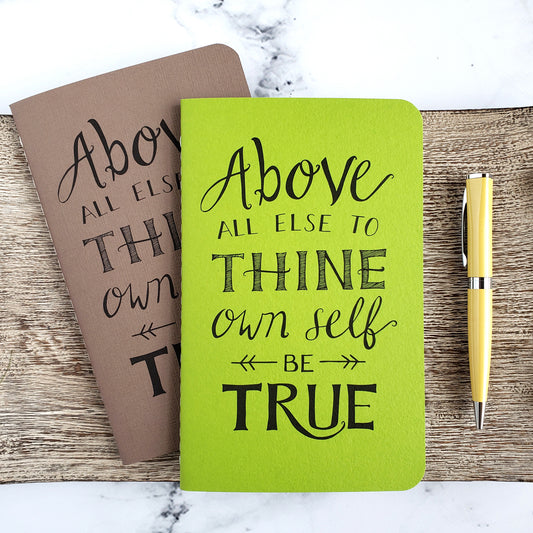 Above
ALL ELSE
THI
own
TR
Above
ALL ELSE TO
THINE
own self
BE
TRUE